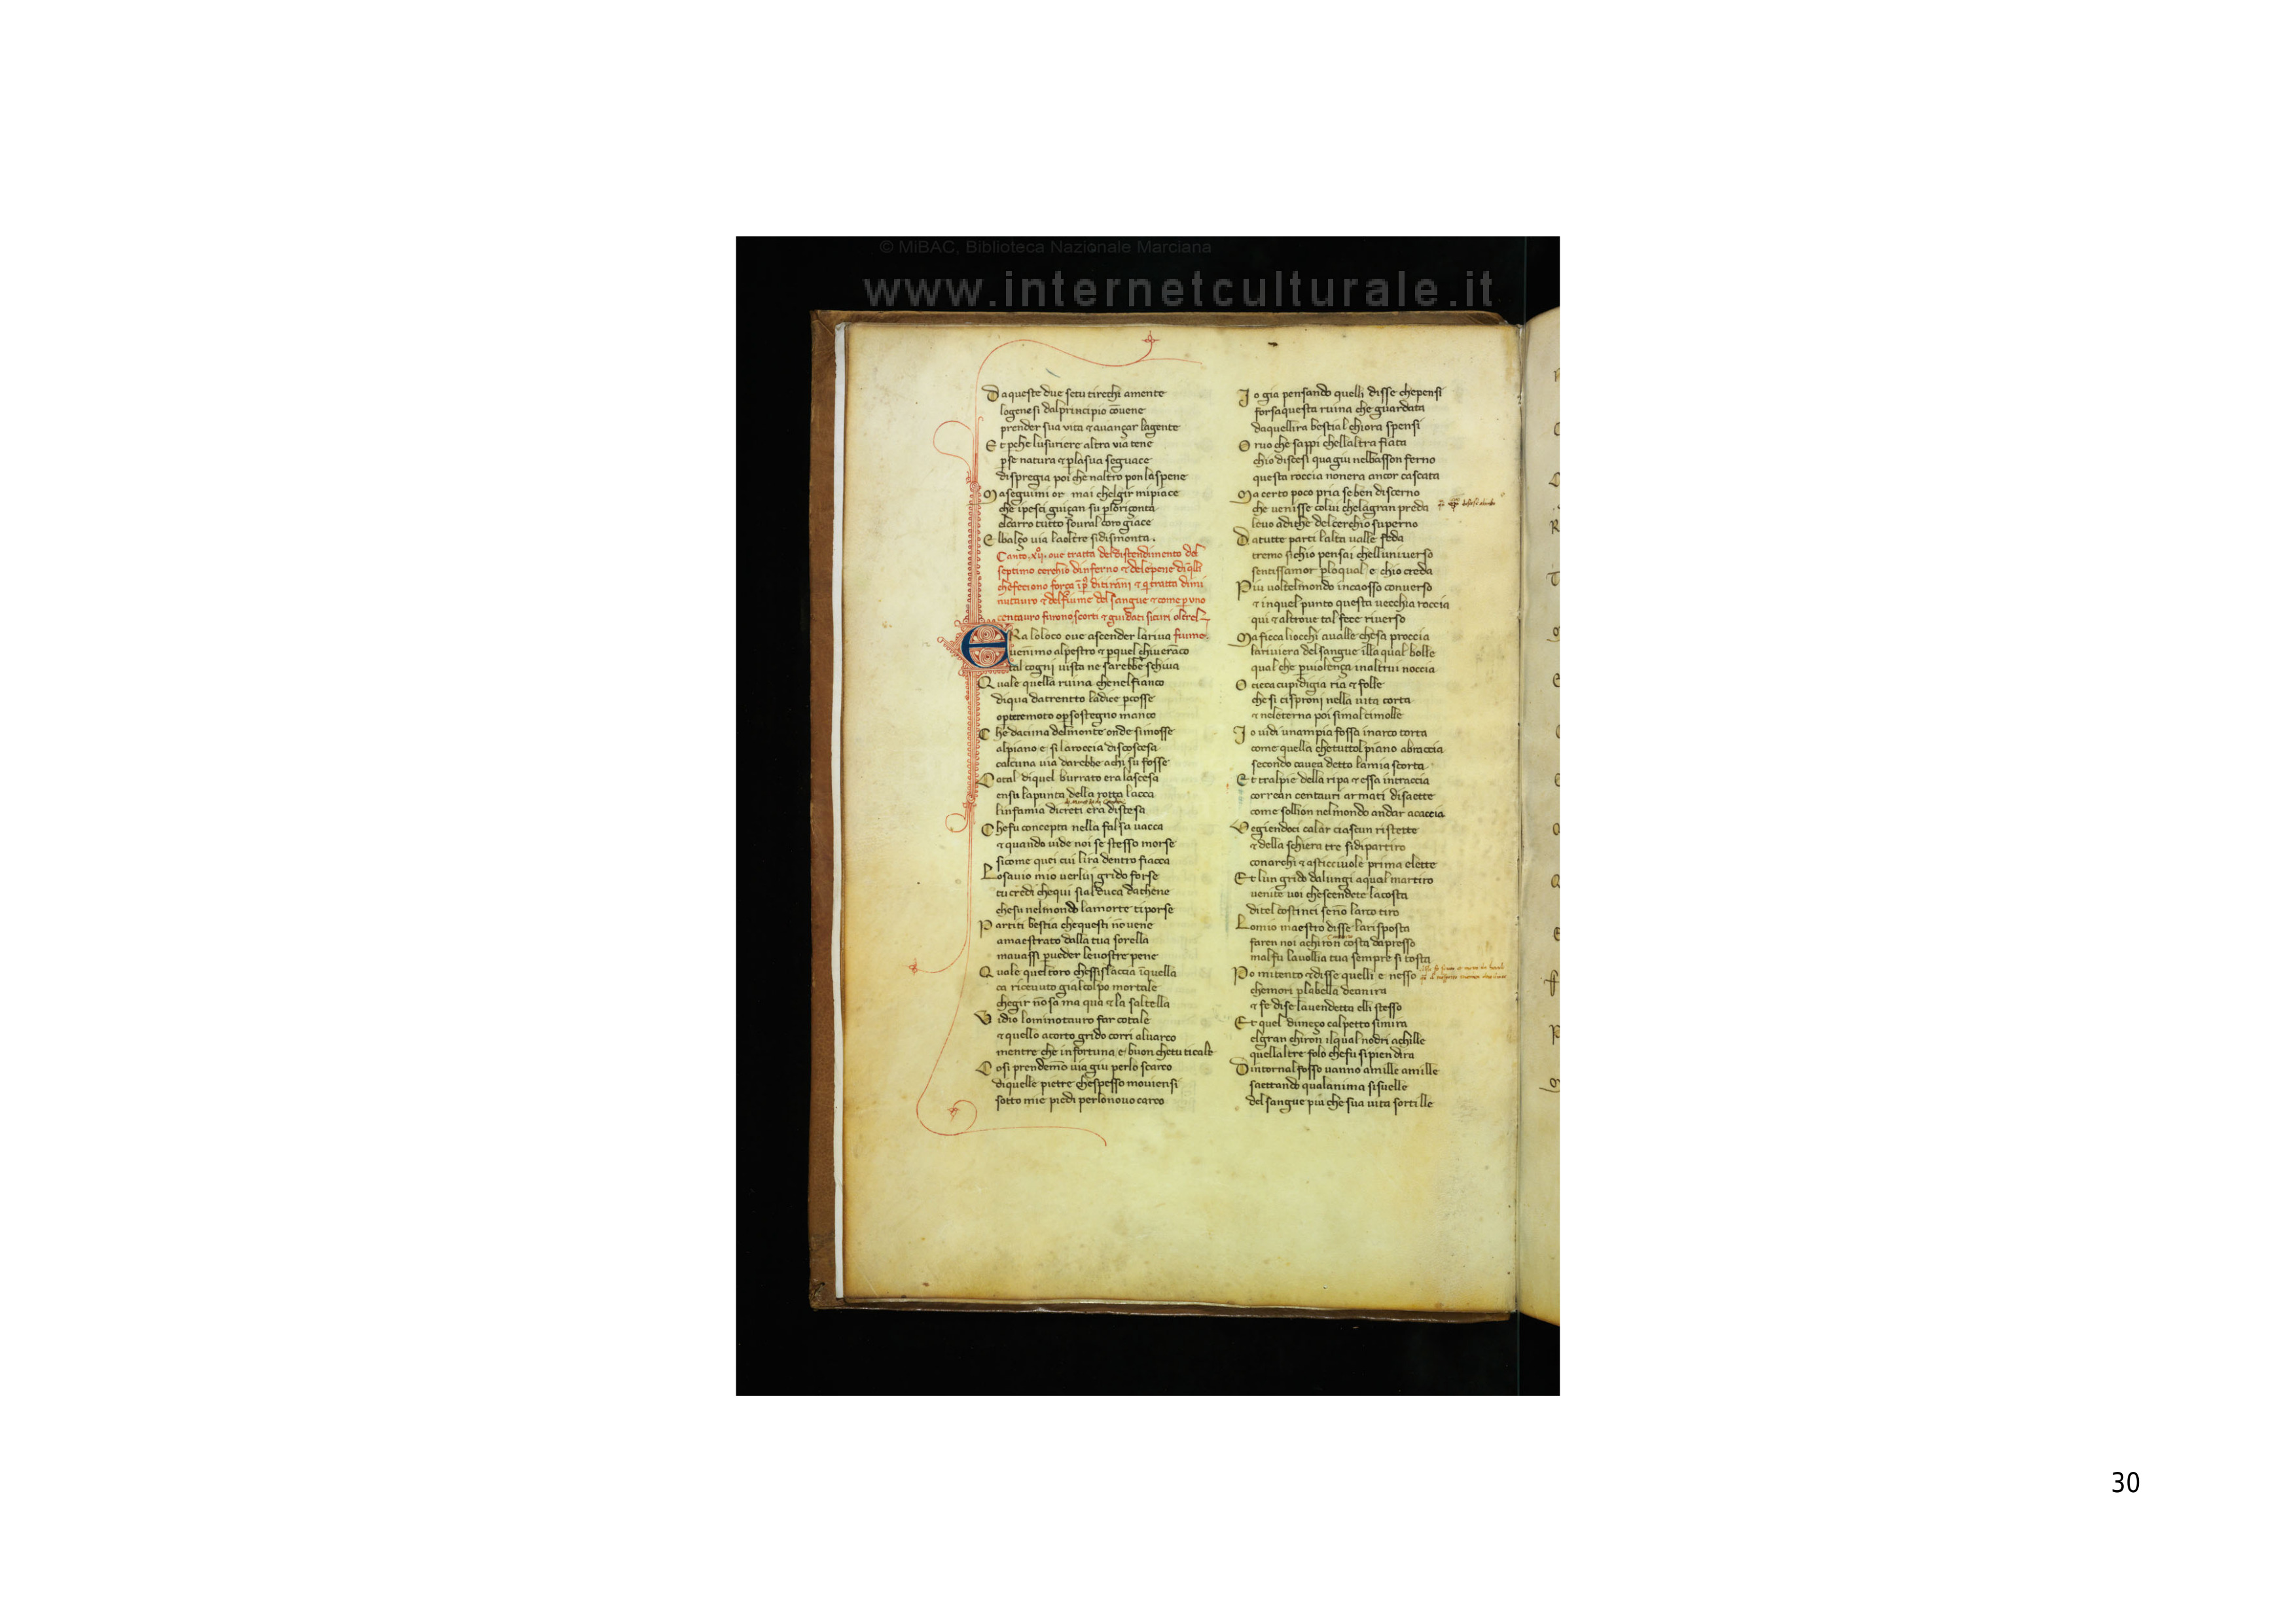 © MiBAC, Biblioteca Nazionale Marciana
www.internetculturale.it
Da queste due setu tirechi amente
logenesi dalprincipio cōuene
prender sua vita ⁊ auançar lagente
Et pche lusuriere altra via tene
pse natura ⁊ plasua seguace
dispregia poi che naltro pon laspene
Ma seguimi or mai chelgir mipiace
che ipesci guiçan su ploriçonta
elcarro tutto soural coro giace
El balço via laoltre sidismonta.
Canto .xij. oue tratta del distendimento del
septimo cerchio dinferno ⁊ delepene di qlli
che feciono força
nutauro ⁊ del fiume del sangue ⁊ come p vno
centauro furono scorti ⁊ guidati sicuri oltrel
ERa loloco oue ascender lariua fiume.
uenimo alpestro ⁊ pquel chiverāco
tal cogni uista ne sarebbe schiua
Quale quella ruina chenelfianco
diqua datrentto ladice pcosse
optremoto opsostegno manco
Che dacima delmonte onde simosse
alpiano e si laroccia discoscesa
calcuna uia darebbe achi su fosse
Cotal diquel burrato era lascesa
ensu lapunta della rotta lacca
linfamia dicreti era distesa
Chefu concepta nella falsa uacca
⁊ quando uide noi se stesso morse
sicome quei cui lira dentro fiacca
Losauio mio uerlui grido forse
tu credi chequi sia lduca dathene
chesu nelmondo lamorte tiporse
Partiti bestia chequesti nō uene
amaestrato dalla tua sorella
mauassi pueder leuostre pene
Quale queltoro chessislaccia īquella
ca riceuuto gialcolpo mortale
chegir nō sa ma qua ⁊ la saltella
Vidio lominotauro far cotale
⁊ quello acorto grido corri aluarco
mentre che infortuna e buon chetu ticale
Cosi prendemō uia giu perlo scarco
diquelle pietre chespesso mouiensi
sotto mie piedi perlonouo carco
Io gia pensando quelli disse chepensi
forsaquesta ruina che guardata
daquellira bestial chiora spensi
Oruo che sappi chellaltra fiata
chio discesi qua giu nelbasson ferno
questa roccia nonera ancor cascata
Ma certo poco pria seben discerno
che uenisse colui chelagran preda
leuo adithe del cerchio superno
Da tutte parti lalta ualle feda
tremo sichio pensai chelluniuerso
sentissamor ploqual e chio creda
Piu uoltelmondo incaosso conuerso
⁊ inquel punto questa uecchia roccia
qui ⁊ altroue tal fece riuerso
Ma ficca liocchi aualle chesa proccia
lariuiera delsangue īlla qual bolle
qual che puiolença inaltrui noccia
O cieca cupidigia ria ⁊ folle
che si cisproni nella uita corta
⁊ neleterna poi simal cimolle
Io uidi unampia fossa inarco torta
come quella chetuttol piano abraccia
secondo cauea detto lamia scorta
Et tralpie della ripa ⁊ essa intraccia
correan centauri armati disaette
come sollion nelmondo andar acaccia
Vegiendoci calar ciascun ristette
⁊ della schiera tre sidipartiro
conarchi ⁊ asticciuole prima elette
Et lun grido dalungi aqual martiro
uenite uoi chescendete lacosta
ditel costinci senō larco tiro
Lomio maestro disse larisposta
faren noi achiron costa dapresso
malfu lauollia tua sempre si tosta
Po mi tento ⁊ disse quelli e nesso
chemori plabella deanira
⁊ fe dise lauendetta elli stesso
Et quel dimeço calpetto simira
elgran chiron ilqual nodri achille
quellaltre folo chefu sipien dira
Dintornal fosso uanno amille amille
saettando qualanima sisuelle
del sangue piu che sua uita sortille
30